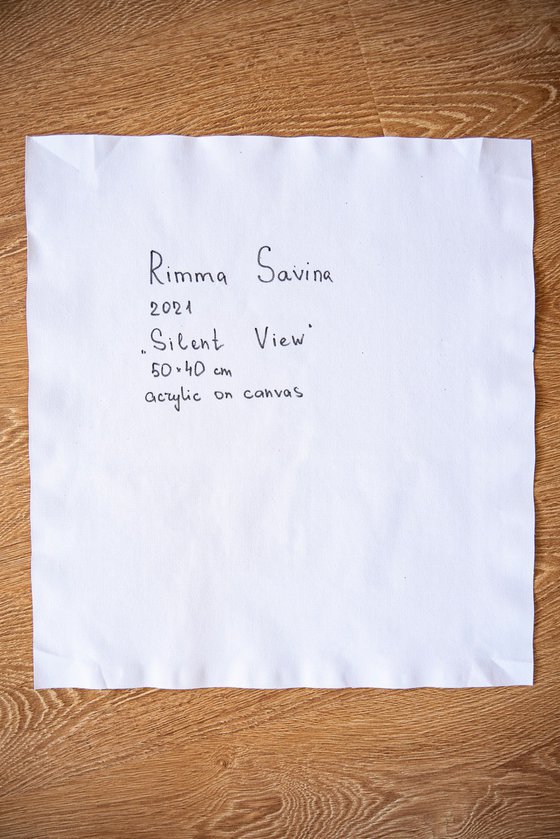 Rimma Savina
2021
„Silent View"
50×40 cm
acrylic on canvas